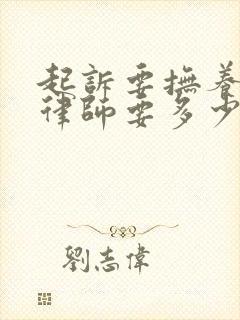 起訴要撫養
律師要多少
劉志偉